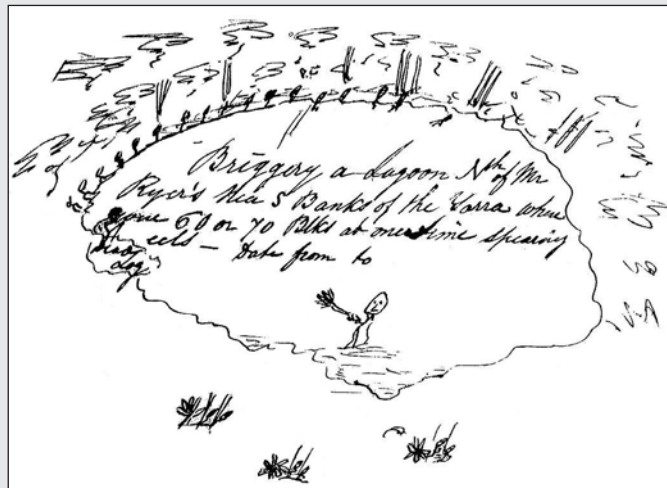 Briggery a Lagoon Nth of Mr
Ryer's Nea S Banks of the Yarra where
some 60 or 70 Blks at one time spearing
eels — Date from to